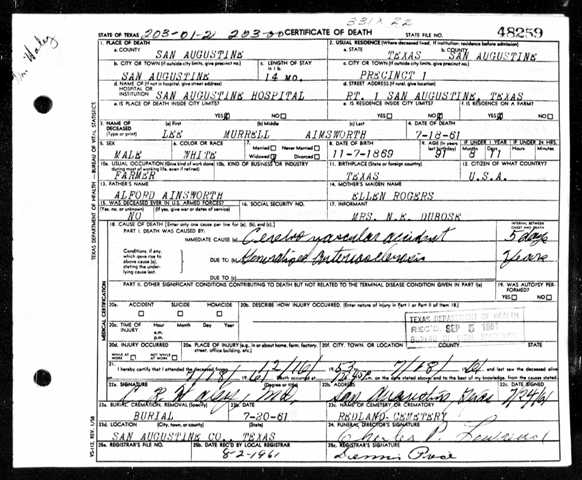 331X 22
STATE OF TEXAS 203-01-2 203-00 CERTIFICATE OF DEATH STATE FILE NO. 48259
1. PLACE OF DEATH 2. USUAL RESIDENCE (Where deceased lived. If institution: residence before admission)
a. COUNTY SAN AUGUSTINE a. STATE TEXAS b. COUNTY SAN AUGUSTINE
b. CITY OR TOWN (If outside city limits, give precinct no.) c. LENGTH OF STAY c. CITY OR TOWN (If outside city limits, give precinct no.)
SAN AUGUSTINE 14 MO. PRECINCT 1
d. NAME OF (If not in hospital, give street address) HOSPITAL OR INSTITUTION SAN AUGUSTINE HOSPITAL d. STREET ADDRESS (If rural, give location) RT. 1 SAN AUGUSTINE, TEXAS
e. IS PLACE OF DEATH INSIDE CITY LIMITS? e. IS RESIDENCE INSIDE CITY LIMITS? f. IS RESIDENCE ON A FARM?
YES NO YES NO YES NO
3. NAME OF DECEASED (Type or print) (a) First (b) Middle (c) Last 4. DATE OF DEATH
LEE MURRELL AINSWORTH 7-18-61
5. SEX 6. COLOR OR RACE 7. Married Never Married Widowed Divorced 8. DATE OF BIRTH 9. AGE (In years last birthday) IF UNDER 1 YEAR Months Days IF UNDER 24 HRS. Hours Minutes
MALE WHITE 11-7-1869 91 8 11
10a. USUAL OCCUPATION 10b. KIND OF BUSINESS OR INDUSTRY 11. BIRTHPLACE (State or foreign country) 12. CITIZEN OF WHAT COUNTRY?
FARMER TEXAS U.S.A.
13. FATHER'S NAME 14. MOTHER'S MAIDEN NAME
ALFORD AINSWORTH ELLEN ROGERS
15. WAS DECEASED EVER IN U.S. ARMED FORCES? (Yes, no, or unknown) (If yes, give war or dates of service) 16. SOCIAL SECURITY NO. 17. INFORMANT
NO MRS. N.E. DUBOSE
18. CAUSE OF DEATH (Enter only one cause per line for (a), (b), and (c).) INTERVAL BETWEEN ONSET AND DEATH
PART I. DEATH WAS CAUSED BY:
IMMEDIATE CAUSE (a) Cerebro vascular accident 5 days
Conditions, if any which gave rise to above cause (a), stating the underlying cause last. DUE TO (b) Generalized Arteriosclerosis Years
DUE TO (c)
PART II. OTHER SIGNIFICANT CONDITIONS CONTRIBUTING TO DEATH BUT NOT RELATED TO THE TERMINAL DISEASE CONDITION GIVEN IN PART I (a) 19. WAS AUTOPSY PERFORMED?
YES NO
20a. ACCIDENT SUICIDE HOMICIDE 20b. DESCRIBE HOW INJURY OCCURRED. (Enter nature of injury in Part I or Part II of item 18.)
20c. TIME OF INJURY Hour Month Day Year a.m. p.m.
TEXAS DEPARTMENT OF HEALTH
REC'D SEP 5 1961
20d. INJURY OCCURRED WHILE AT WORK NOT WHILE AT WORK 20e. PLACE OF INJURY (e.g. in or about home, farm, factory, street, office building, etc.) 20f. CITY, TOWN, OR LOCATION COUNTY STATE
21. I hereby certify that I attended the deceased from
22a. SIGNATURE (Degree or title) 22b. ADDRESS 22c. DATE SIGNED
San Augustine, Texas
23a. BURIAL, CREMATION, REMOVAL (Specify) 23b. DATE 23c. NAME OF CEMETERY OR CREMATORY
BURIAL 7-20-61 REDLAND CEMETERY
23d. LOCATION (City, town, or county) (State) 24. FUNERAL DIRECTOR'S SIGNATURE
SAN AUGUSTINE CO. TEXAS Charles P.
25a. REGISTRAR'S FILE NO. 25b. DATE REC'D BY LOCAL REGISTRAR 25c. REGISTRAR'S SIGNATURE
8-2-1961 Dennis
TEXAS DEPARTMENT OF HEALTH — BUREAU OF VITAL STATISTICS
MEDICAL CERTIFICATION
VS-112, REV. 1/58